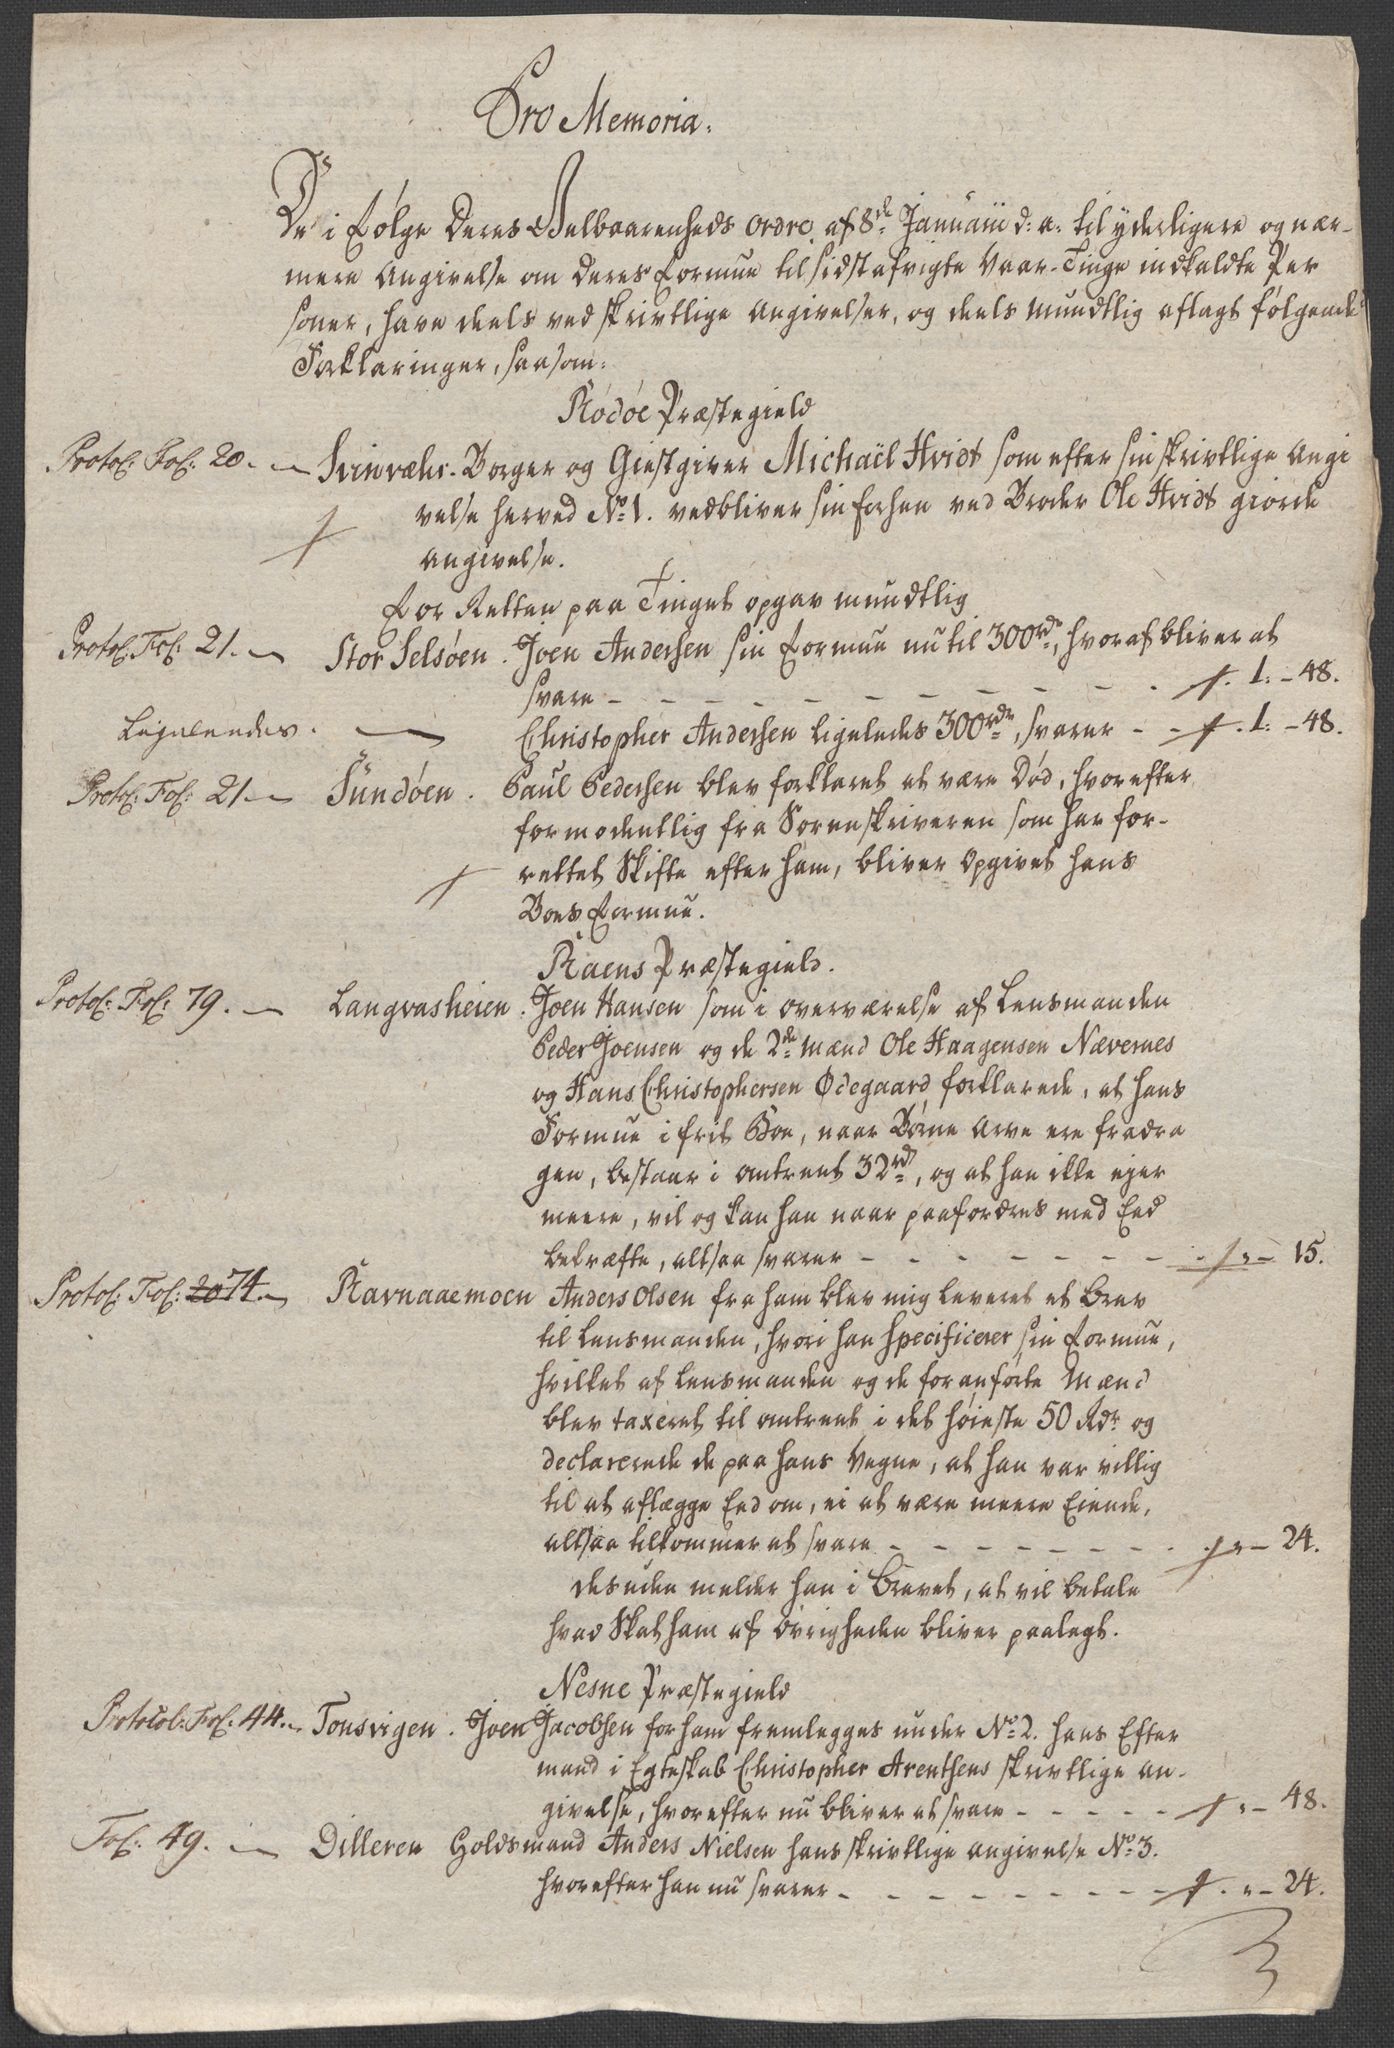 Pro Memoria.
De i Følge Deres Velbaarenheds ordre af 8de Januarii d: a: til yderligere og nær-
mere Angivelse om deres Formue til sidstafvigte Vaar-Tinge indkaldte Per
soner, have deels ved skrivtlige angivelser, og deels mundtlig aflagt følgende
Forklaringer, saasom:
Rödöe Præstegield
Protol: Fol: 20. - Svinvær. Borger og Giestgiver Michaël Hvidt som efter sin skrivtlige Angi
velse herved No 1. vedbliver sin forhen ved Broder Ole Hvidt giorde
angivelse.
For Retten paa Tinget opgav mundtlig
Protol: Fol: 21. - Stor Selsöen. Joen Andersen sin Formue nu til 300rd, hvoraf bliver at
svare - - - - - - - - 1: - 48.
Ligeleedes. - Christopher Andersen ligeledes 300rd, svarer - - 1: - 48.
Protol: Fol: 21 - Sundöen. Paul Pedersen blev forklaret at være Død, hvorefter
formodentlig fra Sorenskriveren som har for-
rettet Skifte efter ham, bliver opgivet hans
Boes Formue.
Raens Præstegield.
Protol: Fol: 79. - Langvasheien. Joen Hansen som i overværelse af Lensmanden
Peder Joensen og de 2de Mænd Ole Haagensen Nævernes
og Hans Christophersen Ödegaard forklarede, at hans
Formue i frit Boe, naar Börne Arve ere fradra
gen, bestaar i omtrent 32rd, og at han ikke ejer
meere, vil og kan han naar paafordres med Eed
bekræfte, altsaa svarer - - - - - - - " - 15.
Protol: Fol: 20 74. - Ravnaaemoen Anders Olsen fra ham blev mig leveret et Brev
til Lensmanden, hvori han specificerer sin Formue,
hvilket af Lensmanden og de foranförte Mænd
blev taxeret til omtrent i det høieste 50 Rdr og
declarerede de paa hans Vegne, at han var villig
til at aflægge Eed om, ei at være meere Eiende,
altsaa tilkommer at svare - - - - - - - " - 24.
desuden melder han i Brevet, at vil betale
hvad Skat ham af Øvrigheden bliver paalagt.
Nesne Præstegield
Protocol: Fol: 44. - Tonsvigen. Joen Jacobsen for ham fremlegges under No 2. hans Efter
mand i Egteskab Christopher Arentsens skrivtlige an-
givelse, hvorefter nu bliver at svare - - - - - " - 48.
Fol: 49. - Dilleren Goldsmand Anders Nielsen hans skrivtlige angivelse No 3.
hvorefter han nu svarer - - - - - - - - " - 24.